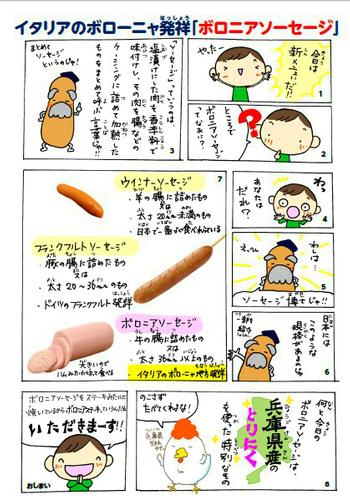 イタリアのボローニャ発祥「ボロニアソーセージ」
はっしょう
今日は
新メニューだ!!
やったー
1
ところで
ボロニアソーセージ
ってなあに?
?
2
「ソーセージ」っていうのは、
塩漬けした肉を香辛料で
味付けし、その肉を腸などの
ケーシングに詰めて加熱した
ものをまとめて呼ぶ
言葉じゃ!!
まとめて
ソーセージ
というのじゃ!
3
わっ
あなたは
だれ!?
4
え〜っ
わしは…
ソーセージ博士じゃ!!
5
日本には
このような
規格がある
んじゃ
6
7
ウインナーソーセージ
・羊の腸に詰めたもの
又は
・太さ20mm未満のもの
・日本で一番よく食べられている
フランクフルトソーセージ
・豚の腸に詰めたもの
又は
・太さ20〜36mmのもの
・ドイツのフランクフルト発祥
ボロニアソーセージ
・牛の腸に詰めたもの
又は
・太さ36mm以上のもの
・イタリアのボローニャ地方発祥
大きいので
ハムみたいに切って食べる
何と今日の
ボロニアソーセージは、
兵庫県産の
とりにく
も使た特別なもの
のこさず
たべてくれよな!
8
ボロニアソーセージをステーキみたいに
焼いているからボロニアステーキっていうんだね
いただきまーす!!
おしまい